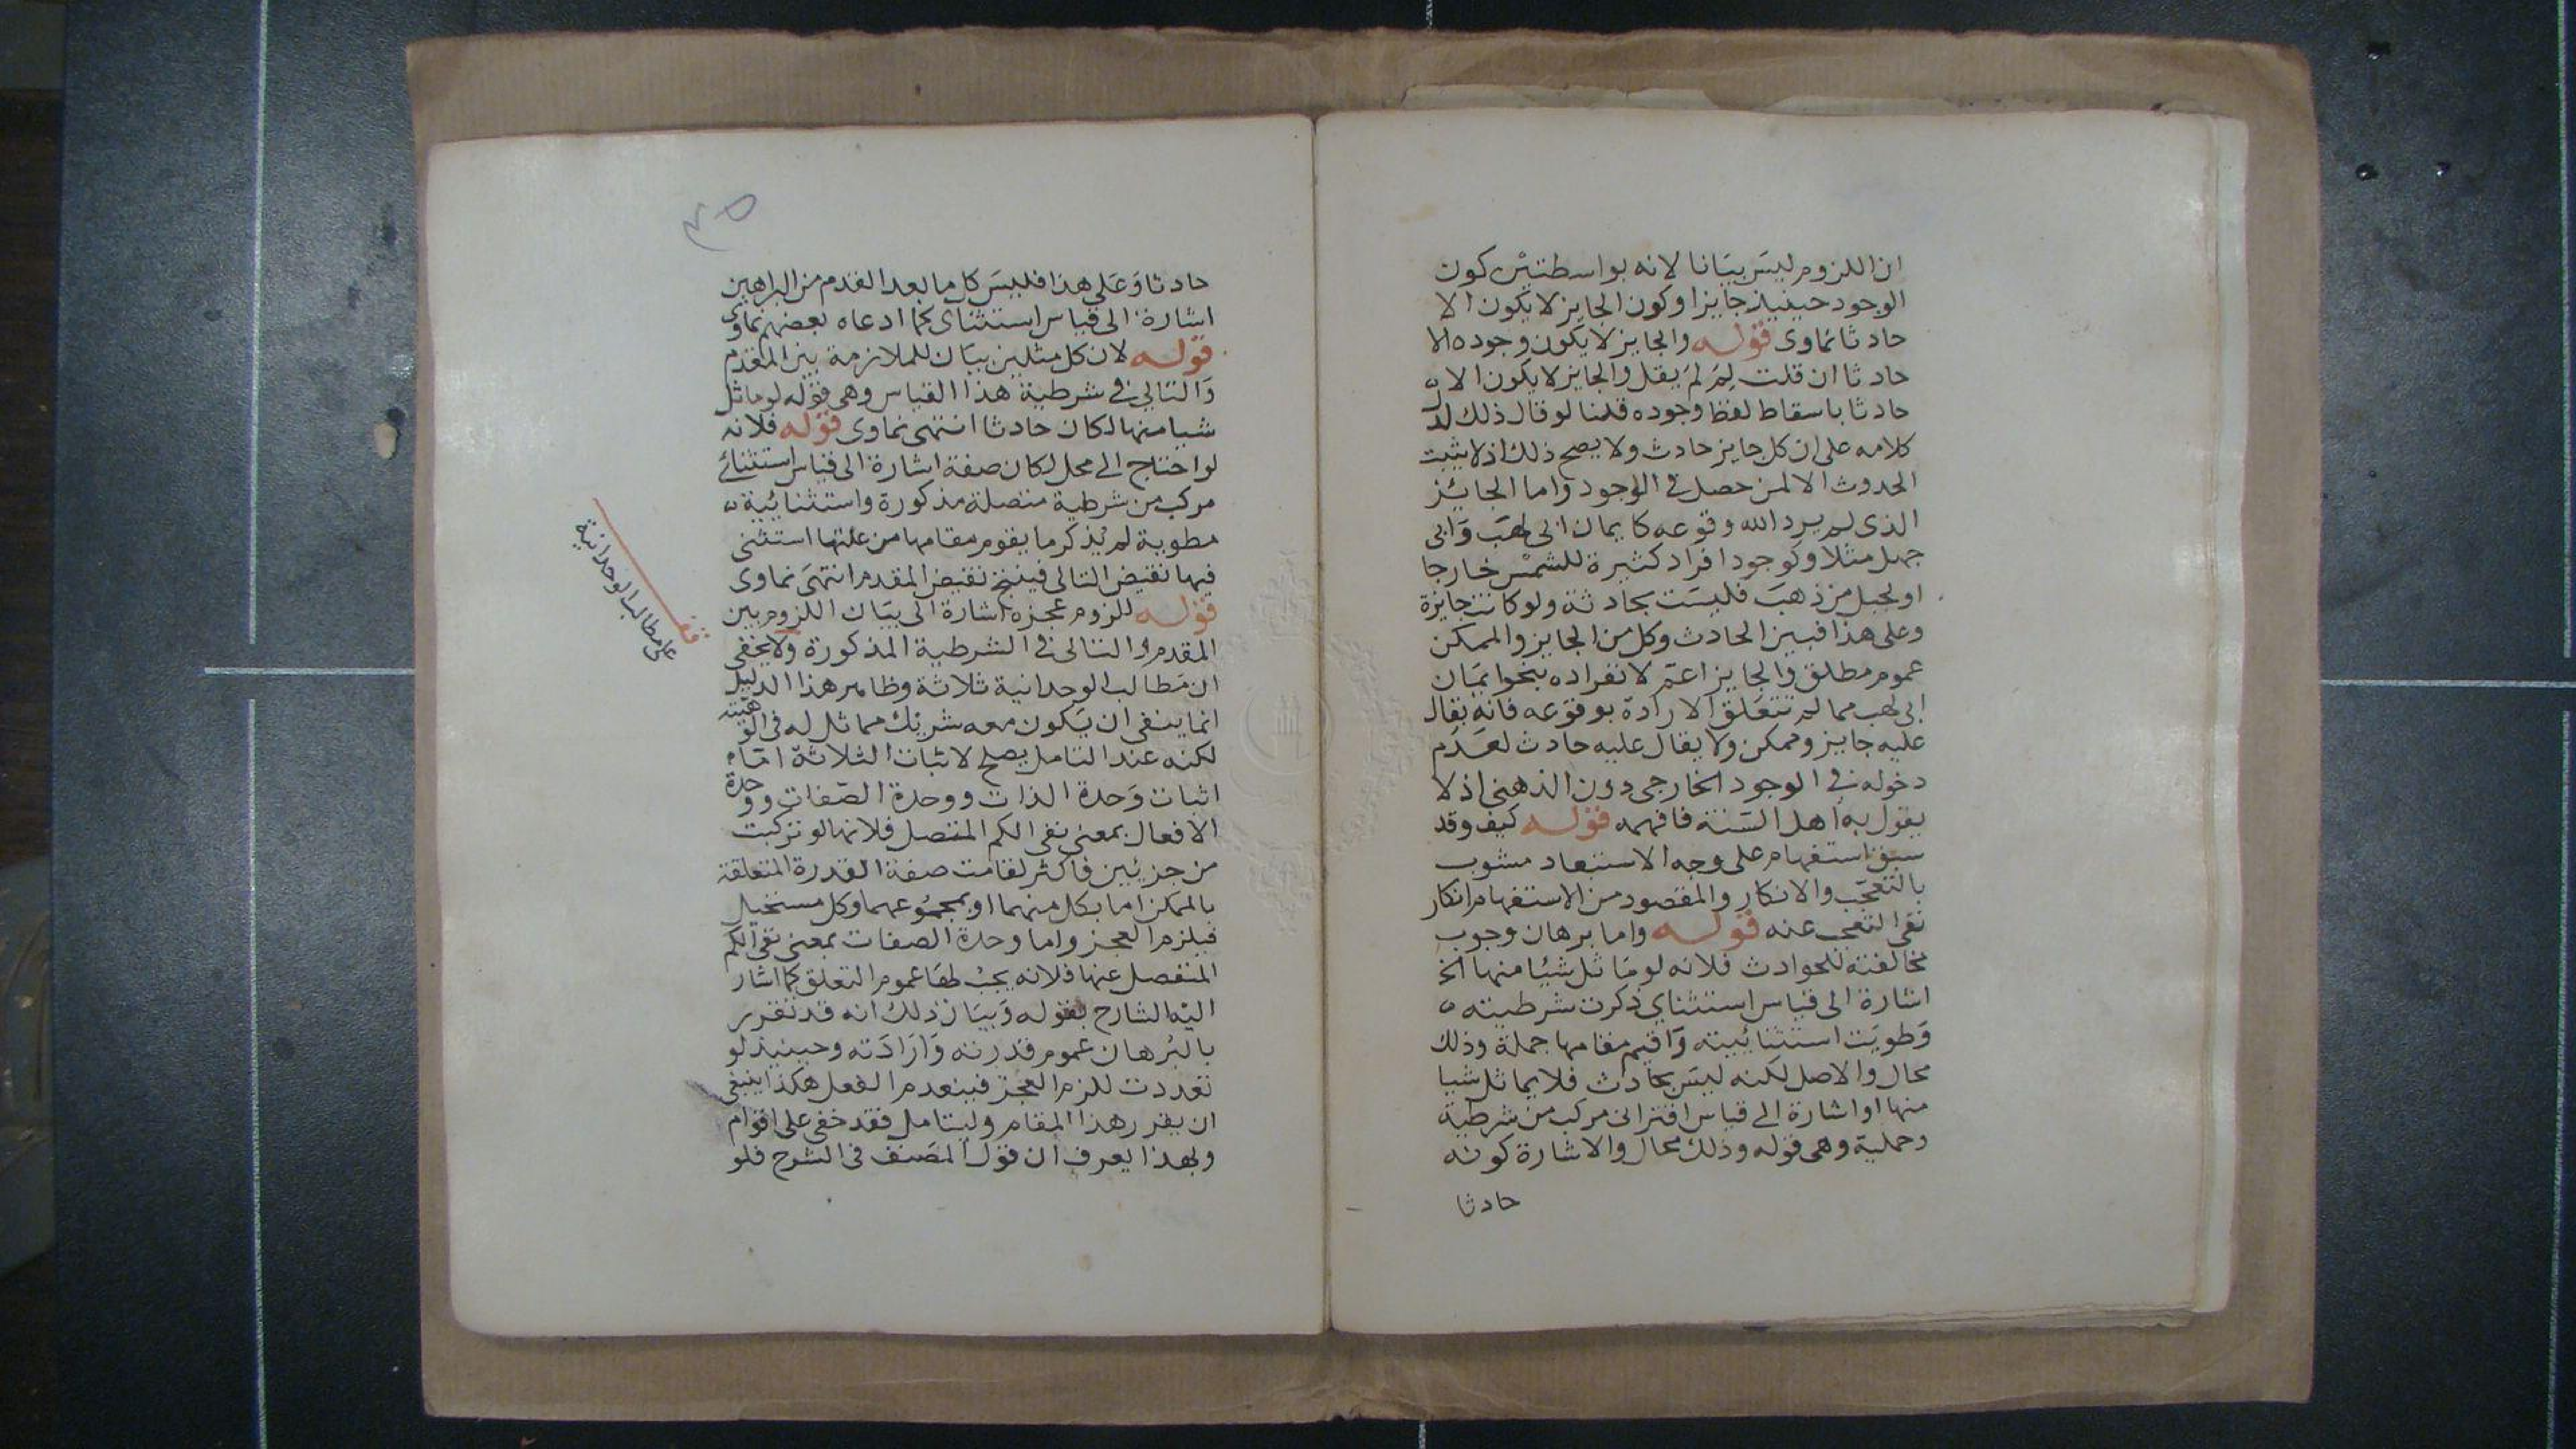 ان اللزوم ليس بيانا لانه بواسطتين كون
الوجود حينيذ جايزا وكون الجايز لا يكون الا
حادثا نماوى قوله والجايز لا يكون وجوده الا
حادثا ان قلت لم لم يقل والجايز لا يكون الا
حادثا باسقاط لفظ وجوده قلنا لو قال ذلك لدل
كلامه على ان كل جايز حادث ولا يصح ذلك اذ لا يثبت
الحدوث الا لمن حصل في الوجود واما الجائز
الذى لم يرد الله وقوعه كايمان ابى لهب وابى
جهل مثلا وكوجود افراد كثيرة للشمس خارجا
او لجبل من ذهب فليست بحادثة ولو كانت جايزة
وعلى هذا فبين الحادث وكل من الجايز والممكن
عموم مطلق والجايز اعم لانفراده بنحو ايمان
ابى لهب مما لم تتعلق الارادة بوقوعه فانه يقال
عليه جايز وممكن ولا يقال عليه حادث لعدم
دخوله في الوجود الخارجى دون الذهنى اذ لا
يقول به اهل السنة فافهمه قوله كيف وقد
سبق استفهام على وجه الاستبعاد مشوب
بالتعجب والانكار والمقصود من الاستفهام انكار
نفى التعجب عنه قوله واما برهان وجوب
مخالفته للحوادث فلانه لو ماثل شيئا منها الخ
اشارة الى قياس استثناي ذكرت شرطيته
وطويت استثنائيته واقيم مقامها جملة وذلك
محال والاصل لكنه ليس بحادث فلا يماثل شيا
منها او اشارة الى قياس اقترانى مركب من شرطية
وحملية وهى قوله وذلك محال والاشارة كونه
حادثا
٣٥
حادثا وعلى هذا فليس كل ما بعد القدم من البراهين
اشارة الى قياس استثناي كما ادعاه بعضهم نماوى
قوله لان كل مثلين بيان للملازمة بين المقدم
والتالي في شرطية هذا القياس وهى قوله لو ماثل
شيا منها لكان حادثا انتهى نماوى قوله فلانه
لو احتاج الى محل لكان صفة اشارة الى قياس استثنائي
مركب من شرطية متصلة مذكورة واستثنائية
مطوية لم يذكر ما يقوم مقامها من علتها استثنى
فيها نقيض التالى فينتج نقيض المقدم انتهى نماوى
قوله للزوم عجزه اشارة الى بيان اللزوم بين
المقدم والتالى في الشرطية المذكورة ولا يخفى
ان مطالب الوحدانية ثلاثة وظاهر هذا الدليل
انما ينفى ان يكون معه شريك مماثل له فى الوهيته
لكنه عند التامل يصلح لاثبات الثلاثة اما
اثبات وحدة الذات ووحدة الصفات ووحدة
الافعال بمعنى نفى الكم المتصل فلانها لو تركبت
من جزئين فاكثر لقامت صفة القدرة المتعلقة
بالممكن اما بكل منهما او بمجموعهما وكل مستحيل
فيلزم العجز واما وحدة الصفات بمعنى نفى الكم
المنفصل عنها فلانه يجب لها عموم التعلق كما اشار
اليه الشارح بقوله وبيان ذلك انه قد تقرر
بالبرهان عموم قدرته وارادته وحينيذ لو
تعددت للزم العجز فينعدم الفعل هكذا ينبغى
ان يقرر هذا المقام وليتامل فقد خفى على اقوام
وبهذا يعرف ان قول المصنف فى الشرح فلو
قف
على مطالب الوحدانية